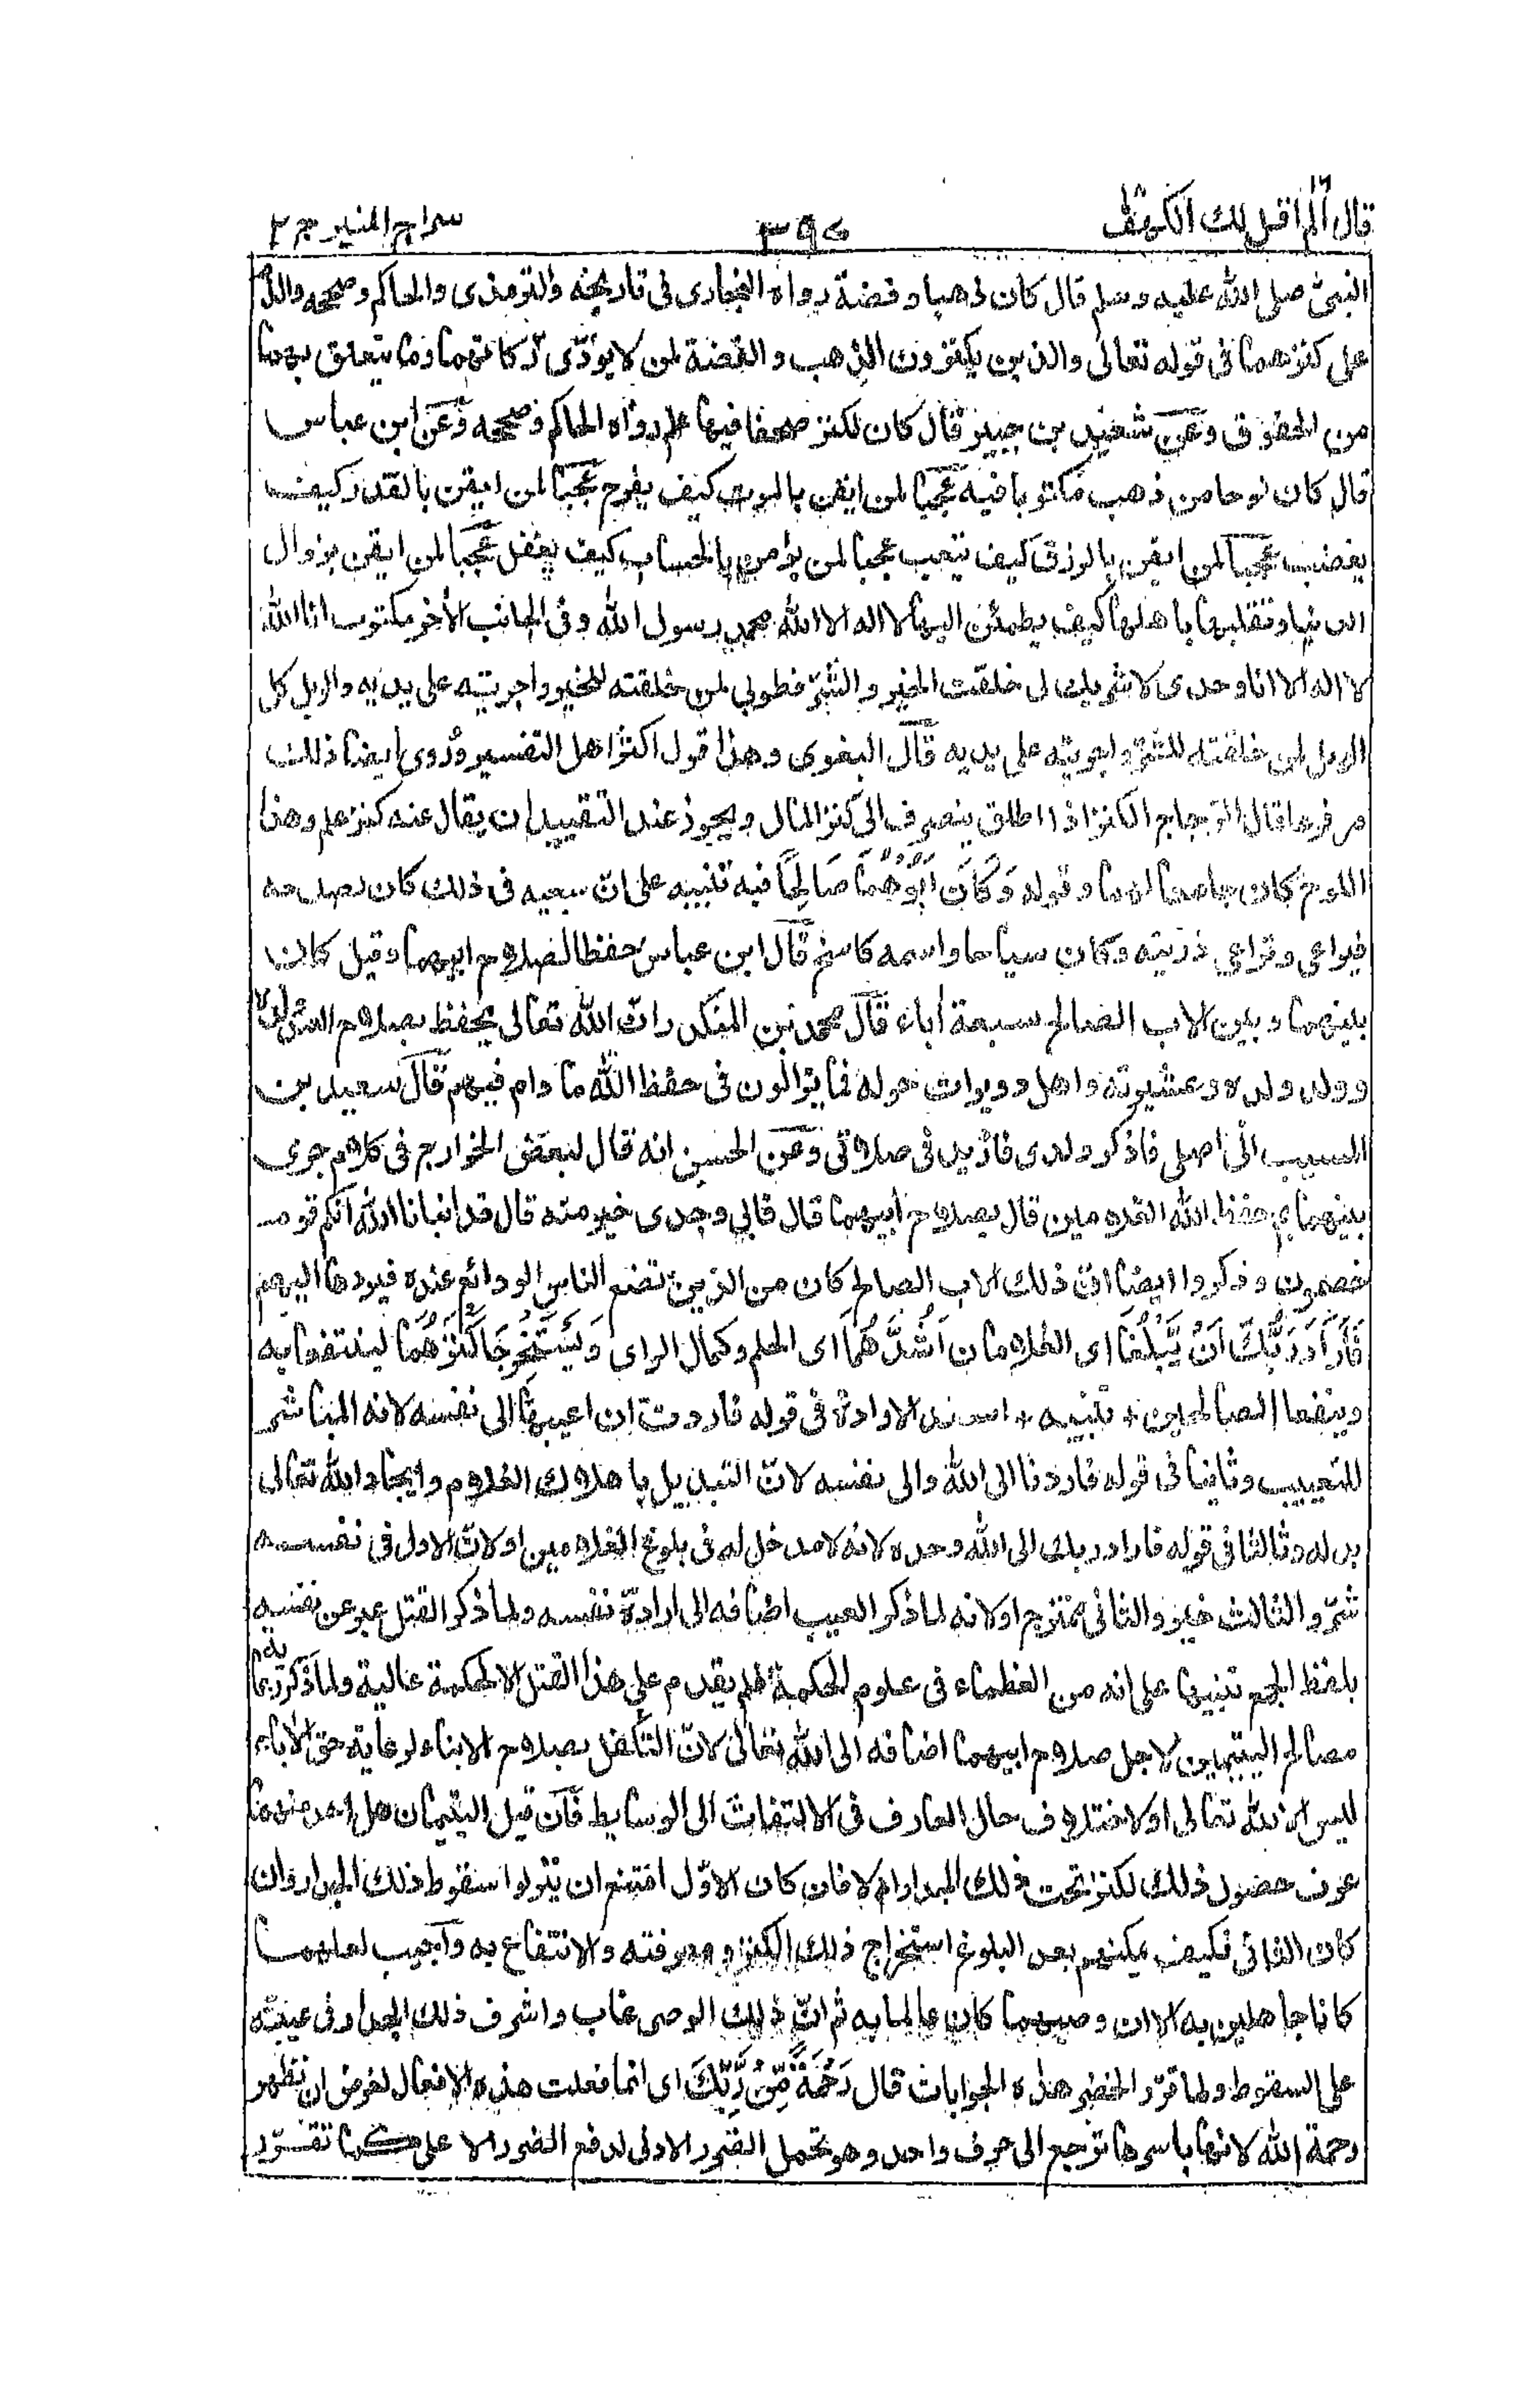 قال ألم اقل لك ١٦ الكهف
٣٩٥
سراج المنير ج ٢
النبيّ صلى الله عليه وسلم قال كان ذهبا وفضة رواه البخارى فى تاريخه والترمذى والحاكم وصححه والذمّ
على كنزهما فى قوله تعالى والذين يكنزون الذهب والفضة لمن لا يؤدّى زكاتهما وما يتعلق بهما
من الحقوق وعن سعيد بن جبير قال كان لكنز صحفا فيها علم رواه الحاكم وصححه وعن ابن عباس
قال كان لوحا من ذهب مكتوبا فيه عجبا لمن ايقن بالموت كيف يفرح عجبا لمن ايقن بالقدر كيف
يغضب عجبا لمن ايقن بالرزق كيف يتعب عجبا لمن يؤمن بالحساب كيف يغفل عجبا لمن ايقن بزوال
الدنيا وتقلبها باهلها كيف يطمئن اليها لا اله الا الله محمد رسول الله وفى الجانب الأخر مكتوب انا الله
لا اله الا انا وحدى لا شريك لى خلقت الخير والشرّ فطوبى لمن خلقته للخير واجريته على يديه والويل كل
الويل لمن خلقته للشرّ واجريته على يديه قال البغوى وهذا قول اكثر اهل التفسير وروى ايضا ذلك
مرفوعا قال الزجاج الكنز اذا اطلق ينصرف الى كنز المال ويجوز عند التقييد ان يقال عنه كنز علم وهذا
اللوح كان جامعا لهما وقوله وَكَانَ اَبُوْهُمَا صَالِحًا فيه تنبيه على انّ سعيه فى ذلك كان لصلاحه
فيراعى وتراعى ذريته وكان سياحا واسمه كاشح قال ابن عباس حفظا لصلاح ابيهما وقيل كان
بينهما وبين الاب الصالح سبعة أباء قال محمد بن المنكدر انّ الله تعالى يحفظ بصلاح العبد ولده
وولد ولده وعشيرته واهل دويرات حوله فما يزالون فى حفظ الله ما دام فيهم قال سعيد بن
المسيب انى اصلى فاذكر ولدى فازيد فى صلاتى وعن الحسن انه قال لبعض الخوارج فى كلام جرى
بينهما بم حفظ الله الغلامين قال بصلاح ابيهما قال فابى وجدى خير منه قال قد انبانا الله انكم قوم
خصمون وذكروا ايضا انّ ذلك الاب الصالح كان من الذين تضع الناس الودائع عنده فيردها اليهم
فَاَرَادَ رَبُّكَ اَنْ يَّبْلُغَا اى الغلامان اَشُدَّهُمَا اى الحلم وكمال الراى وَيَسْتَخْرِجَا كَنْزَهُمَا لينتفعا به
وينفعا الصالحين + تنبيه + اسند الارادة فى قوله فاردت ان اعيبها الى نفسه لانه المباشر
للتعييب وثانيا فى قوله فاردنا الى الله والى نفسه لانّ التبديل باهلاك الغلام وايجاد الله تعالى
بدله وثالثا فى قوله فاراد ربك الى الله وحده لانه لا مدخل له فى بلوغ الغلامين او لانّ الاول فى نفسه
شرّ والثالث خير والثانى ممتزج او لانه لما ذكر العيب اضافه الى ارادة نفسه ولما ذكر القتل عبر عن نفسه
بلفظ الجمع تنبيها على انه من العظماء فى علوم الحكمة فلم يقدم على هذا القتل الا لحكمة عالية ولما ذكر رعاية
مصالح اليتيمين لاجل صلاح ابيهما اضافه الى الله تعالى لانّ التكفل بصلاح الابناء لرعاية حق الأباء
ليس الا لله تعالى او لاختلاف حال العارف فى الالتفات الى الوسايط فان قيل اليتيمان هل احد منهما
عرف حصول ذلك لكنز تحت ذلك الجدار ام لا فان كان الاوّل امتنع ان يتركوا سقوط ذلك الجدار وان
كان الثانى فكيف يمكنهم بعد البلوغ استخراج ذلك الكنز ومعرفته والانتفاع به واجيب لعلهما
كانا جاهلين به الا ان وصيهما كان عالما به ثم انّ ذلك الوصى غاب واشرف ذلك الجدار فى غيبته
على السقوط ولما قرّر الخضر هذه الجوابات قال رَحْمَةً مِّنْ رَّبِّكَ اى انما فعلت هذه الافعال لغرض ان تظهر
رحمة الله لانها باسرها ترجع الى حرف واحد وهو تحمل الضرر الادنى لدفع الضرر الاعلى كما تقرّر